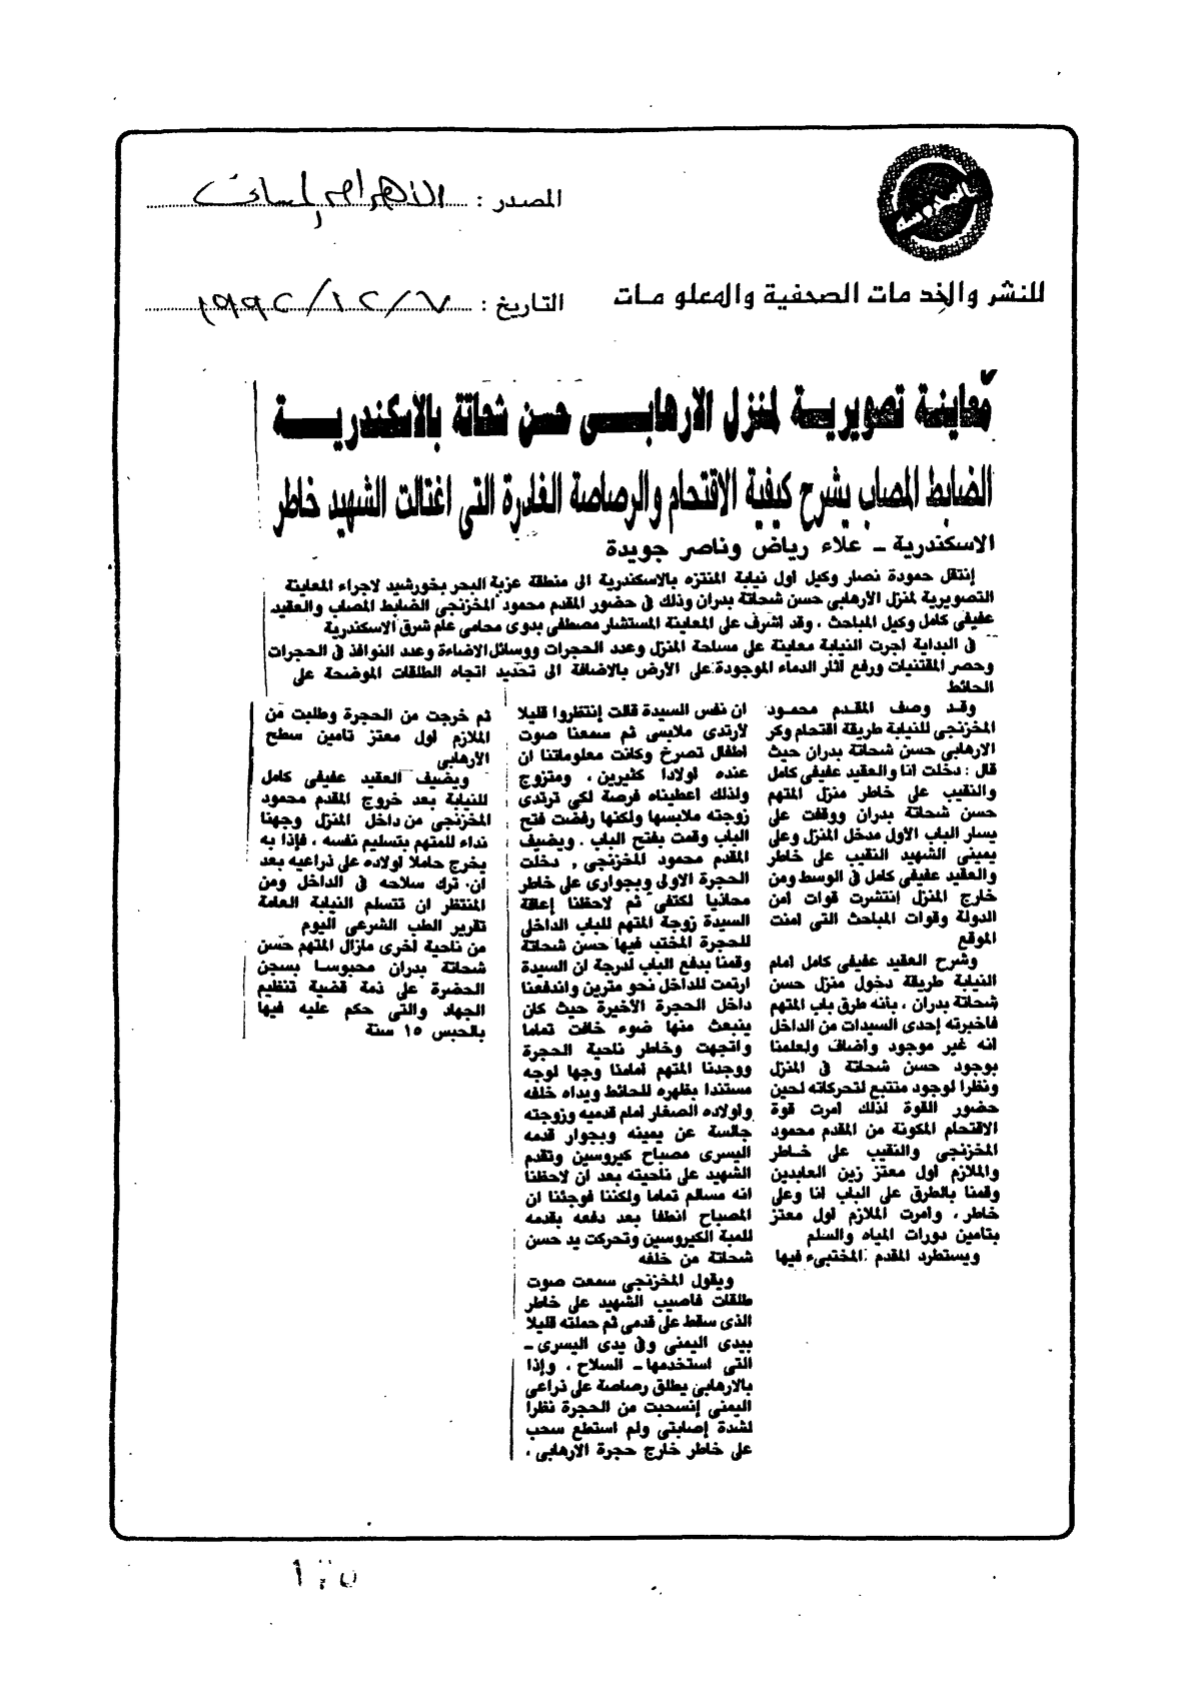 المصدر : الأهرام المسائى
للنشر والخدمات الصحفية والمعلومات
التاريخ : ٧/ ١٢/ ١٩٩٢
معاينة تصويرية لمنزل الارهابى حسن شحاتة بالاسكندرية
الضابط المصاب يشرح كيفية الاقتحام والرصاصة الغادرة التى اغتالت الشهيد خاطر
الاسكندرية ـ علاء رياض وناصر جويدة
إنتقل حمودة نصار وكيل اول نيابة المنتزه بالاسكندرية الى منطقة عزبة البحر بخورشيد لاجراء المعاينة
التصويرية لمنزل الارهابى حسن شحاتة بدران وذلك فى حضور المقدم محمود المخزنجى الضابط المصاب والعقيد
عفيفى كامل وكيل المباحث ، وقد اشرف على المعاينة المستشار مصطفى بدوى محامى عام شرق الاسكندرية
فى البداية اجرت النيابة معاينة على مساحة المنزل وعدد الحجرات ووسائل الاضاءة وعدد النوافذ فى الحجرات
وحصر المقتنيات ورفع اثار الدماء الموجودة على الأرض بالاضافة الى تحديد اتجاه الطلقات الموضحة على
الحائط
وقد وصف المقدم محمود
المخزنجى للنيابة طريقة اقتحام وكر
الارهابى حسن شحاتة بدران حيث
قال : دخلت انا والعقيد عفيفى كامل
والنقيب على خاطر منزل المتهم
حسن شحاتة بدران ووقفت على
يسار الباب الاول مدخل المنزل وعلى
يمينى الشهيد النقيب على خاطر
والعقيد عفيفى كامل فى الوسط ومن
خارج المنزل إنتشرت قوات امن
الدولة وقوات المباحث التى امنت
الموقع
وشرح العقيد عفيفى كامل امام
النيابة طريقة دخول منزل حسن
شحاتة بدران ، بأنه طرق باب المتهم
فاخبرته إحدى السيدات من الداخل
انه غير موجود واضاف ولعلمنا
بوجود حسن شحاتة فى المنزل
ونظرا لوجود متتبع لتحركاته لحين
حضور القوة لذلك امرت قوة
الاقتحام المكونة من المقدم محمود
المخزنجى والنقيب على خاطر
والملازم اول معتز زين العابدين
وقمنا بالطرق على الباب انا وعلى
خاطر ، وامرت الملازم اول معتز
بتامين دورات المياه والسلم
ويستطرد المقدم : المختبىء فيها
ان نفس السيدة قالت إنتظروا قليلا
لارتدى ملابسى ثم سمعنا صوت
اطفال تصرخ وكانت معلوماتنا ان
عنده اولادا كثيرين ، ومتزوج
ولذلك اعطيناه فرصة لكى ترتدى
زوجته ملابسها ولكنها رفضت فتح
الباب وقمت بفتح الباب . ويضيف
المقدم محمود المخزنجى , دخلت
الحجرة الاولى وبجوارى على خاطر
محاذيا لكتفى ثم لاحظنا إعاقة
السيدة زوجة المتهم للباب الداخلى
للحجرة المختب فيها حسن شحاتة
وقمنا بدفع الباب لدرجة ان السيدة
ارتمت للداخل نحو مترين واندفعنا
داخل الحجرة الأخيرة حيث كان
ينبعث منها ضوء خافت تماما
واتجهت وخاطر ناحية الحجرة
ووجدنا المتهم أمامنا وجها لوجه
مستندا بظهره للحائط ويداه خلفه
واولاده الصغار امام قدميه وزوجته
جالسة عن يمينه وبجوار قدمه
اليسرى مصباح كيروسين وتقدم
الشهيد على ناحيته بعد ان لاحظنا
انه مسالم تماما ولكننا فوجئنا ان
المصباح انطفا بعد دفعه بقدمه
للمبة الكيروسين وتحركت يد حسن
شحاتة من خلفه
ويقول المخزنجى سمعت صوت
طلقات فاصيب الشهيد على خاطر
الذى سقط على قدمى ثم حملته قليلا
بيدى اليمنى وفى يدى اليسرى ـ
التى استخدمها ـ السلاح ، وإذا
بالارهابى يطلق رصاصة على ذراعى
اليمنى إنسحبت من الحجرة نظرا
لشدة إصابتى ولم استطع سحب
على خاطر خارج حجرة الارهابى ،
ثم خرجت من الحجرة وطلبت من
الملازم اول معتز تامين سطح
الارهابى
ويضيف العقيد عفيفى كامل
للنيابة بعد خروج المقدم محمود
المخزنجى من داخل المنزل وجهنا
نداء للمتهم بتسليم نفسه ، فإذا به
يخرج حاملا اولاده على ذراعيه بعد
ان ترك سلاحه فى الداخل ومن
المنتظر ان تتسلم النيابة العامة
تقرير الطب الشرعى اليوم
من ناحية اخرى مازال المتهم حسن
شحاتة بدران محبوسا بسجن
الحضرة على ذمة قضية تنظيم
الجهاد والتى حكم عليه فيها
بالحبس ١٥ سنة